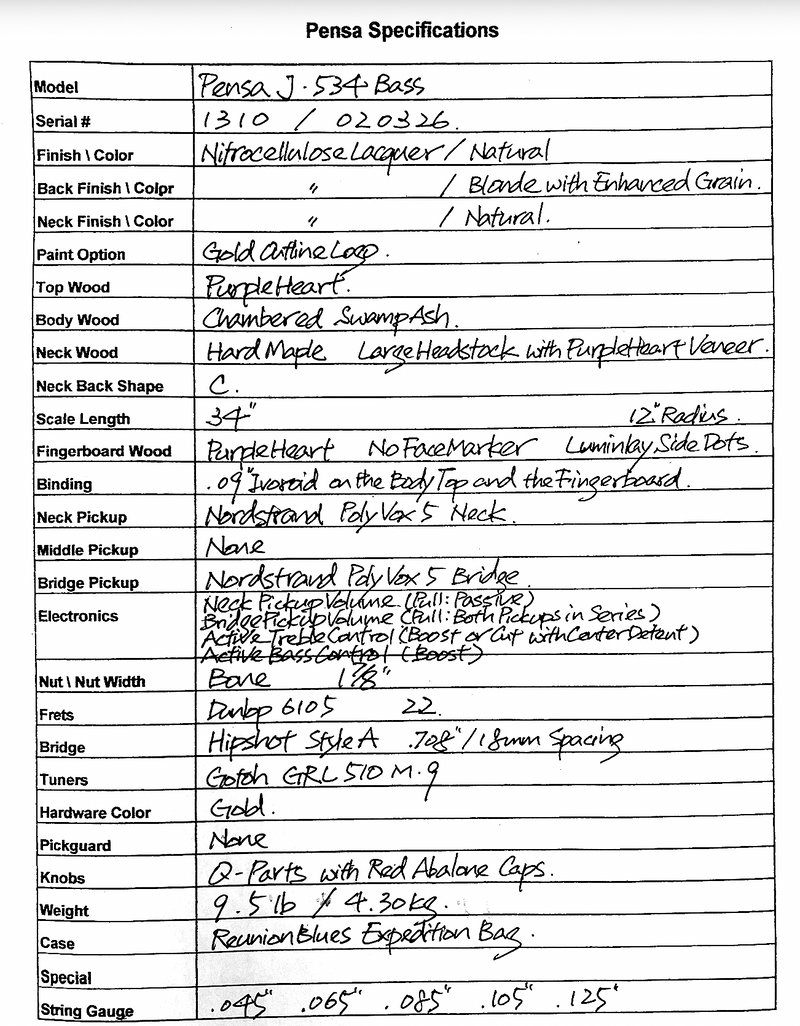 Pensa Specifications
Model Pensa J·534 Bass
Serial # 1310 / 020326.
Finish \ Color Nitrocellulose Lacquer / Natural
Back Finish \ Color 〃 / Blonde with Enhanced Grain.
Neck Finish \ Color 〃 / Natural.
Paint Option Gold Outline Logo.
Top Wood PurpleHeart.
Body Wood Chambered Swamp Ash.
Neck Wood Hard Maple Large Headstock with PurpleHeart Veneer.
Neck Back Shape C.
Scale Length 34" 12" Radius.
Fingerboard Wood PurpleHeart No Face Marker Luminlay Side Dots.
Binding .09" Ivoroid on the Body Top and the Fingerboard.
Neck Pickup Nordstrand Poly Vox 5 Neck.
Middle Pickup None
Bridge Pickup Nordstrand Poly Vox 5 Bridge.
Electronics Neck Pickup Volume (Pull: Passive)
Bridge Pickup Volume (Pull: Both Pickups in Series)
Active Treble Control (Boost or Cut with Center Detent)
Active Bass Control (Boost)
Nut \ Nut Width Bone 1 7/8"
Frets Dunlop 6105 22.
Bridge Hipshot Style A .708" / 18mm Spacing
Tuners Gotoh GRL 510 M·9
Hardware Color Gold.
Pickguard None
Knobs Q-Parts with Red Abalone Caps.
Weight 9.5 lb / 4.30 kg.
Case Reunion Blues Expedition Bag.
Special
String Gauge .045" .065" .085" .105" .125"